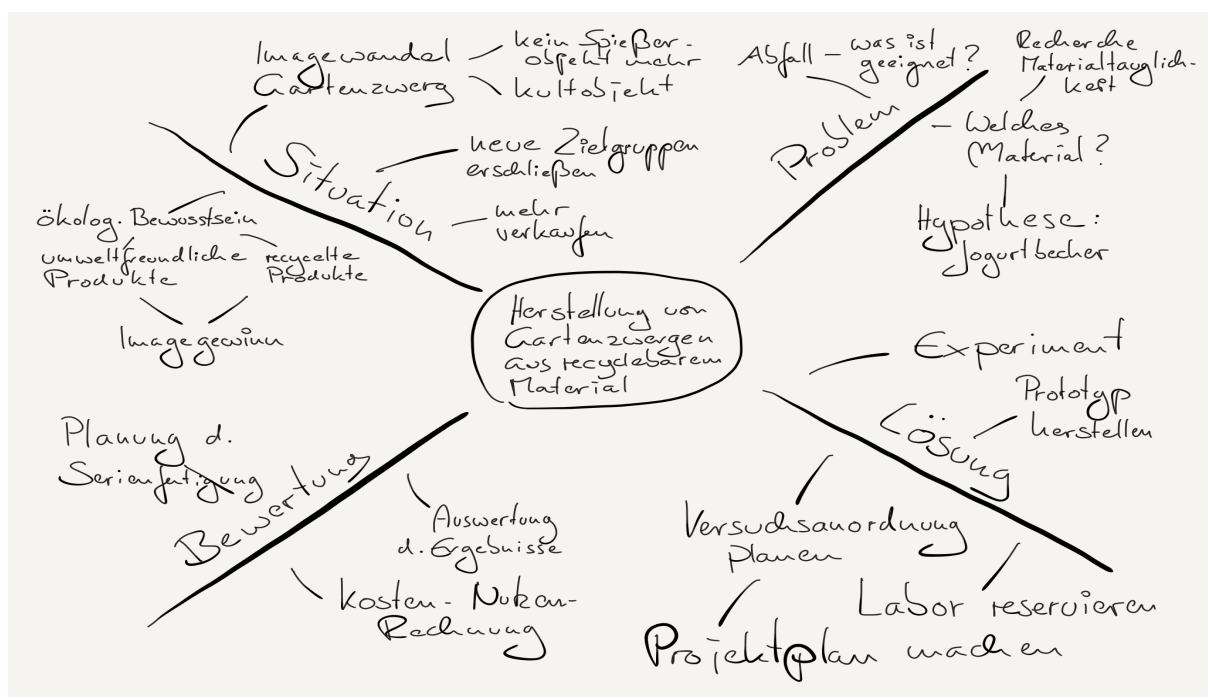 Herstellung von
Gartenzwergen
aus recyclebarem
Material
Situation
Imagewandel
Gartenzwerg
kein Spießer-
objekt mehr
kultobjekt
neue Zielgruppen
erschließen
mehr
verkaufen
ökolog. Bewusstsein
umweltfreundliche
Produkte
recycelte
Produkte
Imagegewinn
Problem
Abfall – was ist
geeignet?
Welches
Material?
Recherche
Materialtauglich-
keit
Hypothese:
Jogurtbecher
Lösung
Experiment
Prototyp
herstellen
Versuchsanordnung
planen
Projektplan machen
Labor reservieren
Bewertung
Planung d.
Serienfertigung
Auswertung
d. Ergebnisse
Kosten-Nutzen-
Rechnung